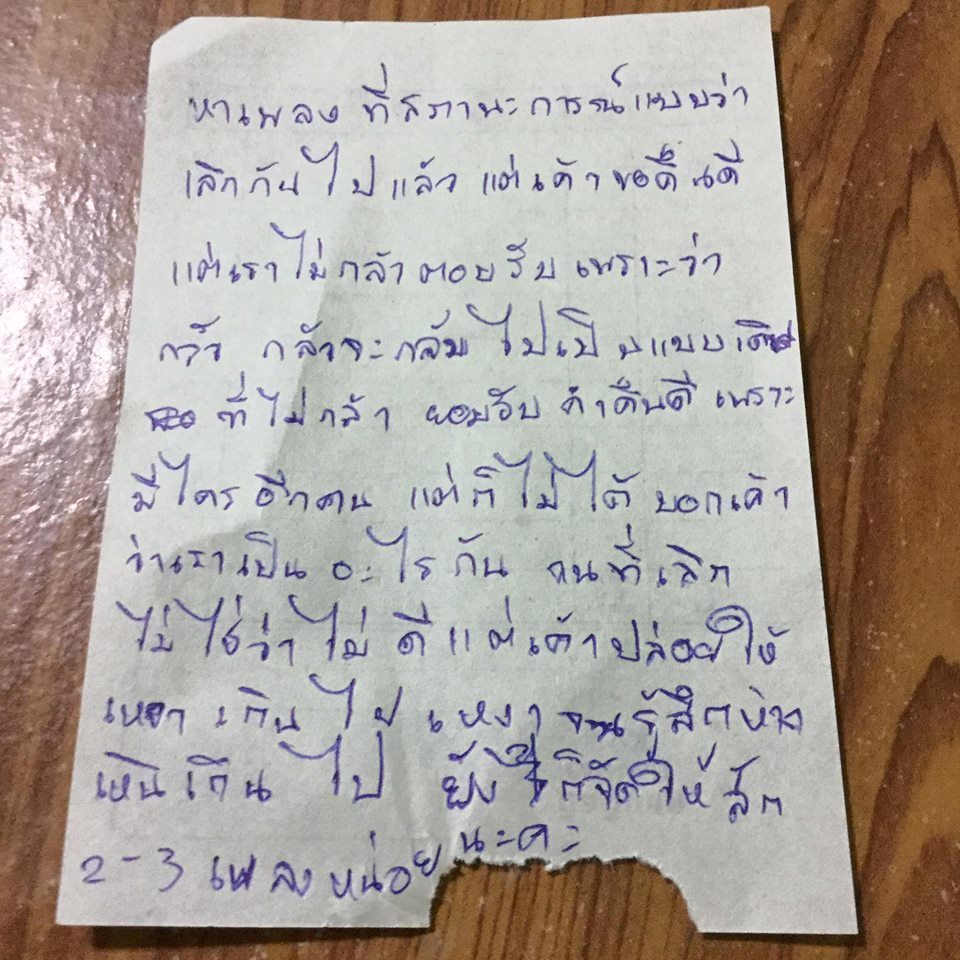 หาเพลง ที่สถานะการณ์แบบว่า
เลิกกันไปแล้ว แต่เค้าขอคืนดี
แต่เราไม่กล้าตอบรับเพราะว่า
กลัว กลัวจะกลับไปเป็นแบบเดิม
ที่ไม่กล้า ยอมรับ คำคืนดี เพราะ
มีใครอีกคน แต่ก็ไม่ได้ บอกเค้า
ว่าเราเป็น อะไรกัน ตนที่เลิก
ไม่ใช่ว่าไม่ดีแต่เค้าปล่อยให้
เหงาเกินไป เหงาจนรู้สึกห่าง
เหินเกินไป ยังไงก็จัดให้สัก
2-3 เพลงหน่อยนะคะ